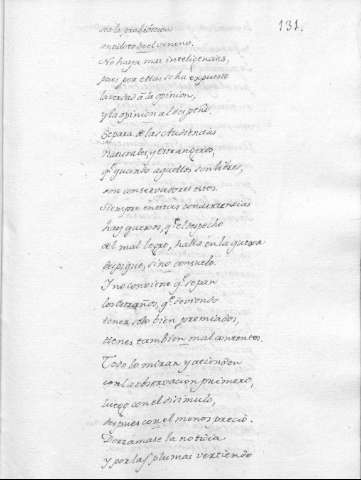 131.
en el veneno.
No haya mas inteligencias,
pues por ellas se ha expuesto
la verdad à la opinion,
y la opinion al despeño.
Separa de las Audiencias
Naturales, y extrangeros,
qᵉ quando aquellos son libres,
son conservadores estos.
Siempre en estas condesendencias
hay quexosos, qᵉ el despecho
del mal logro, halla en la quexa
despique, si no consuelo.
Y no conviene qᵉ sepan
los extraños, qᵉ
bien premiados,
tienes tambien mal contentos.
Todo lo miran y atienden
con la observacion primero,
luego con el disimulo,
despues con el menos precio.
Derramase la noticia
y por las plumas vertiendo